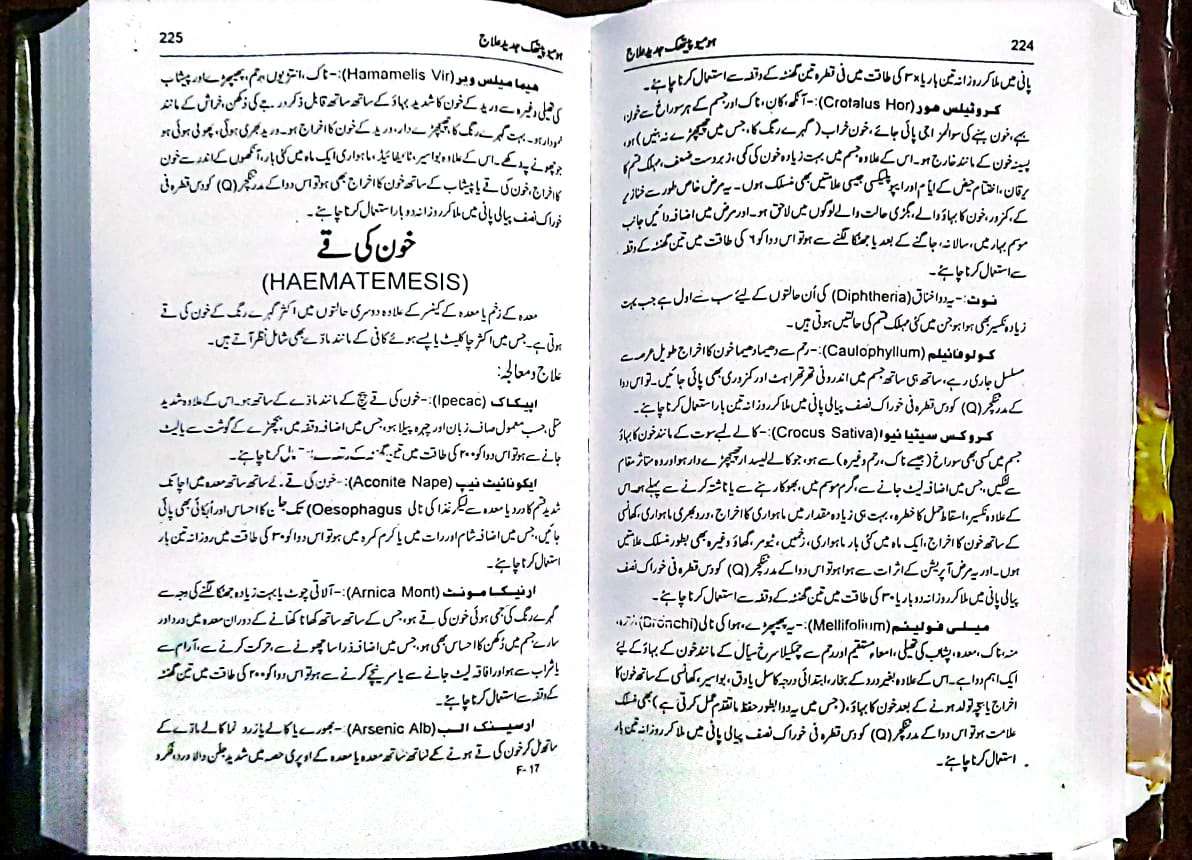 224
ہومیوپیتھک جدید علاج
پانی میں ملا کر روزانہ تین بار یا ×۳ کی طاقت میں فی قطرہ تین گھنٹہ کے وقفہ سے استعمال کرنا چاہئے۔
کروٹیلس ہور (Crotalus Hor):- آنکھ، کان، ناک اور جسم کے ہر سوراخ سے خون،
بہے، خون بہنے کی سوالمزاجی پائی جائے، خون خراب (گہرے رنگ کا، جس میں چھیچھڑے نہ بنیں) ہو،
پسینہ خون کے مانند خارج ہو۔ اس کے علاوہ جسم میں بہت زیادہ خون کی کمی، زبردست ضعف، مہلک قسم کا
یرقان، اختتام حیض کے ایام اور ایپوپلیکسی جیسی علامتیں بھی منسلک ہوں۔ یہ مرض خاص طور سے خنازیر
کے، کمزور، خون کا بہاؤ والے، بگڑی حالت والے لوگوں میں لاحق ہو۔ اور مرض میں اضافہ دائیں جانب
موسم بہار میں، سالانہ، جاگنے کے بعد یا جھٹکا لگنے سے ہو تو اس دوا کو ۶ کی طاقت میں تین گھنٹہ کے وقفہ
سے استعمال کرنا چاہئے۔
نوٹ:- یہ دوا خناق (Diphtheria) کی اُن حالتوں کے لیئے سب سے اول ہے جب بہت
زیادہ نکسیر بھی ہوا ہو جن میں کئی مہلک قسم کی حالتیں ہوتی ہیں۔
کولوفائیلم (Caulophyllum):- رحم سے دھیما دھیما خون کا اخراج طویل عرصہ سے
مسلسل جاری رہے، ساتھ ہی ساتھ جسم میں اندرونی تھرتھراہٹ اور کمزوری بھی پائی جائیں۔ تو اس دوا
کے مدر ٹنکچر (Q) کو دس قطرہ فی خوراک نصف پیالی پانی میں ملا کر روزانہ تین بار استعمال کرنا چاہئے۔
کروکس سیٹیائیوا (Crocus Sativa):- کالے لمبے سوت کے مانند خون کا بہاؤ
جسم میں کسی بھی سوراخ (جیسے ناک، رحم وغیرہ) سے ہو، جو کالے لیسدار چھیچھڑے دار ہو اور وہ متاثر مقام
سے لٹکیں، جس میں اضافہ لیٹ جانے سے، گرم موسم میں، بھوکا رہنے سے یا ناشتہ کرنے سے پہلے ہو۔ اس
کے علاوہ نکسیر، اسقاط حمل کا خطرہ، بہت ہی زیادہ مقدار میں ماہواری کا اخراج، درد بھری ماہواری، کھانسی
کے ساتھ خون کا اخراج، ایک ماہ میں کئی بار ماہواری، زخمیں، ٹیومر، گھاؤ وغیرہ بھی بطور منسلک علامتیں
ہوں۔ اور یہ مرض آپریشن کے اثرات سے ہوا ہو تو اس دوا کے مدر ٹنکچر (Q) کو دس قطرہ فی خوراک نصف
پیالی پانی میں ملا کر روزانہ دو بار یا ۳۰ کی طاقت میں تین گھنٹہ کے وقفہ سے استعمال کرنا چاہئے۔
میلی فولینم (Mellifolium):- یہ پھیپھڑے، ہوا کی نالی (Bronchi)
منہ، ناک، معدہ، پیشاب کی تھیلی، امعاء مستقیم اور رحم سے چمکیلا سرخ سیال کے مانند خون کے بہاؤ کے لیئے
ایک اہم دوا ہے۔ اس کے علاوہ بغیر درد کے بخار، ابتدائی درجہ کا سل یا دق، بواسیر، کھانسی کے ساتھ خون کا
اخراج یا بچہ تولد ہونے کے بعد خون کا بہاؤ، (جس میں یہ دوا بطور حفظ ماتقدم عمل کرتی ہے) بھی منسلک
علامت ہو تو اس دوا کے مدر ٹنکچر (Q) کو دس قطرہ فی خوراک نصف پیالی پانی میں ملا کر روزانہ تین بار
استعمال کرنا چاہئے۔
ہومیوپیتھک جدید علاج
225
ہیما میلس ویر (Hamamelis Vir):- ناک، انتڑیوں، رحم، پھیپھڑے اور پیشاب
کی تھیلی وغیرہ سے ورید کے خون کا شدید بہاؤ کے ساتھ ساتھ قابل ذکر درجے کی دُکھن، خراش کے مانند
نمودار ہو۔ بہت گہرے رنگ کا، چھیچھڑے دار، ورید کے خون کا اخراج ہو۔ ورید بھری ہوئی، پھولی ہوئی ہو
جو چھونے پر دُکھے۔ اس کے علاوہ بواسیر، ٹائیفائیڈ، ماہواری ایک ماہ میں کئی بار، آنکھوں کے اندر سے خون
کا اخراج، خون کی قے یا پیشاب کے ساتھ خون کا اخراج بھی ہو تو اس دوا کے مدر ٹنکچر (Q) کو دس قطرہ فی
خوراک نصف پیالی پانی میں ملا کر روزانہ دو بار استعمال کرنا چاہئے۔
خون کی قے
(HAEMATEMESIS)
معدہ کے زخم یا معدہ کے کینسر کے علاوہ دوسری حالتوں میں اکثر گہرے رنگ کے خون کی قے
ہوتی ہے۔ جس میں اکثر چاکلیٹ یا پسے ہوئے کافی کے مانند مادّے بھی شامل نظر آتے ہیں۔
علاج و معالجہ:
ایپکاک (Ipecac):- خون کی قے پیچ کے مانند مادّے کے ساتھ ہو۔ اس کے علاوہ شدید
متلی، حسب معمول صاف زبان اور چہرہ پیلا ہو، جس میں اضافہ وقفہ میں، بچھڑے کے گوشت سے یا لیٹ
جانے سے ہو تو اس دوا کو ۲۰۰ کی طاقت میں تین گھنٹہ کے کرنا چاہئے۔
ایکونائیٹ نیپ (Aconite Nape):- خون کی قے کے ساتھ ساتھ معدہ میں اچانک
شدید قسم کا درد یا معدہ سے لیکر غذا کی نالی Oesophagus) تک جلن کا احساس اور اُبکائی بھی پائی
جائیں، جس میں اضافہ شام اور رات میں یا گرم کمرہ میں ہو تو اس دوا کو ۳۰ کی طاقت میں روزانہ تین بار
استعمال کرنا چاہئے۔
ارنیکا مونٹ (Arnica Mont):- آلاتی چوٹ یا بہت زیادہ جھٹکا لگنے کی وجہ سے
گہرے رنگ کی جمی ہوئی خون کی قے ہو، جس کے ساتھ ساتھ کھانا کھانے کے دوران معدہ میں درد اور
سارے جسم میں دُکھن کا احساس بھی ہو، جس میں اضافہ ذرا سا چھونے سے، حرکت کرنے سے، آرام سے
یا شراب سے ہو اور افاقہ لیٹ جانے سے یا سر نیچے کرنے سے ہو تو اس دوا کو ۲۰۰ کی طاقت میں تین گھنٹہ
کے وقفہ سے استعمال کرنا چاہئے۔
ارسینک الب (Arsenic Alb):- بھورے یا کالے یا زرد نما کالے مادّے کے
ساتھ مل کر خون کی قے ہونے کے ساتھ ساتھ معدہ یا معدہ کے اوپری حصہ میں شدید جلن والا درد، فکر و
F-17